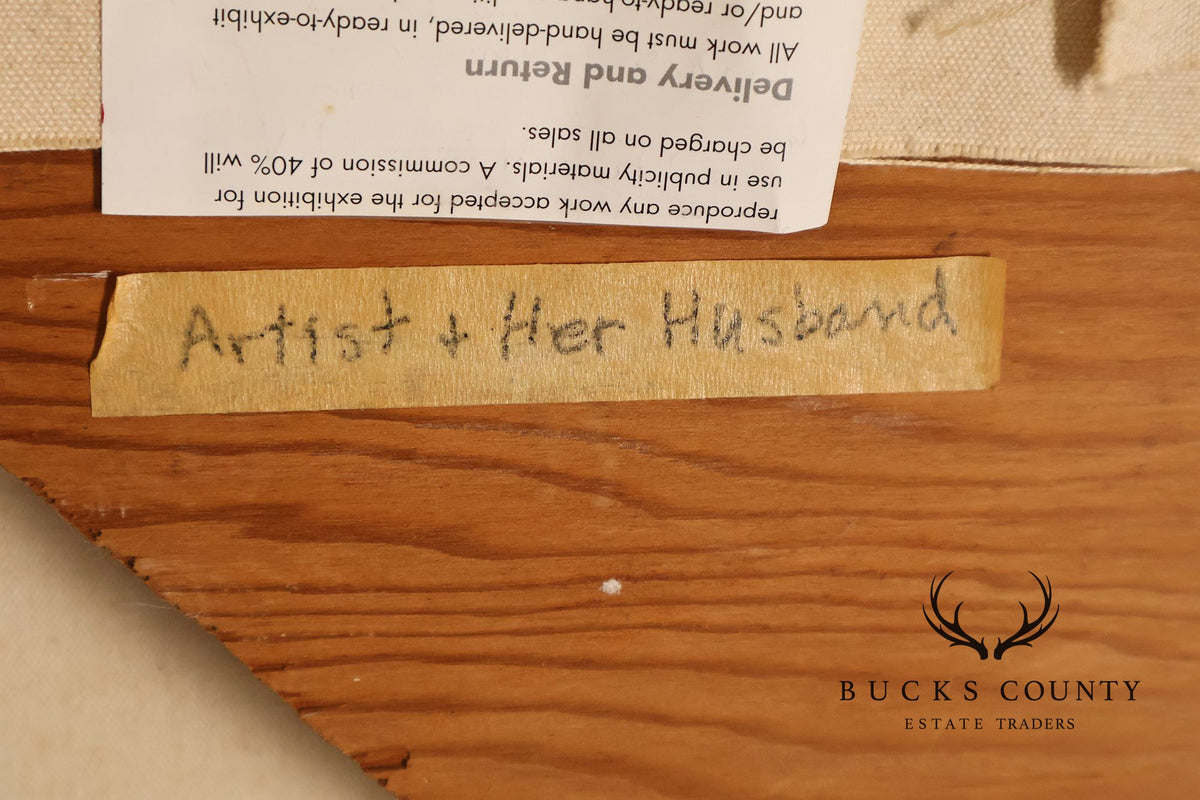 reproduce any work accepted for the exhibition for
use in publicity materials. A commission of 40% will
be charged on all sales.
Delivery and Return
All work must be hand-delivered, in ready-to-exhibit
and/or ready-to-hang
Artist + Her Husband
BUCKS COUNTY
ESTATE TRADERS